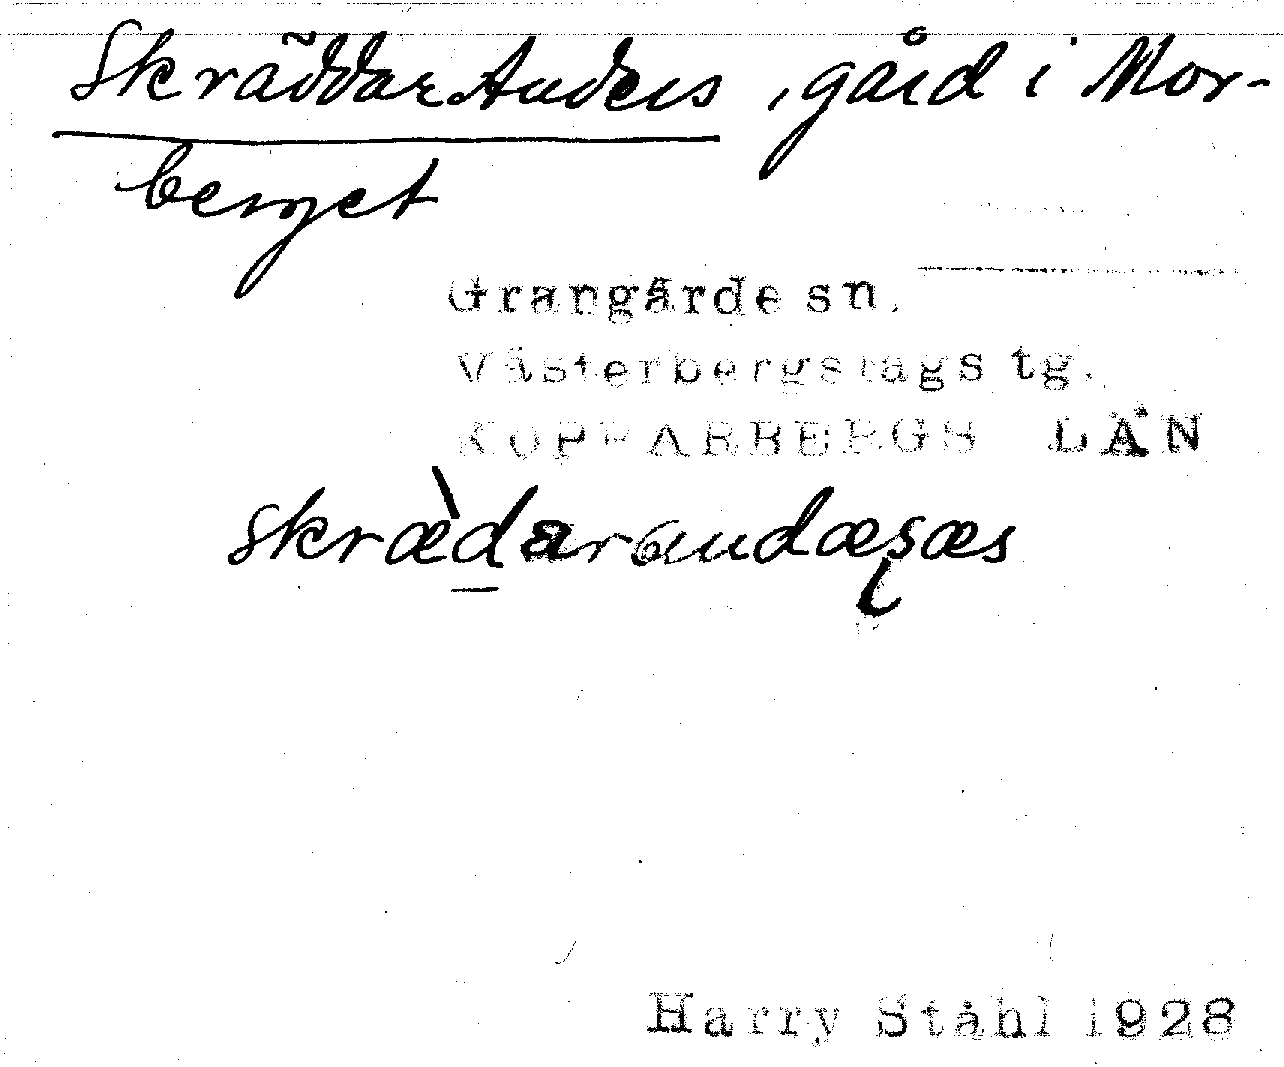 Skräddar Anders, gård i Mor-
berget
Grangärde sn.
Västerbergslags tg.
KOPPARBERGS LÄN
skræ̀darandæʂæs
Harry Ståhl 1928